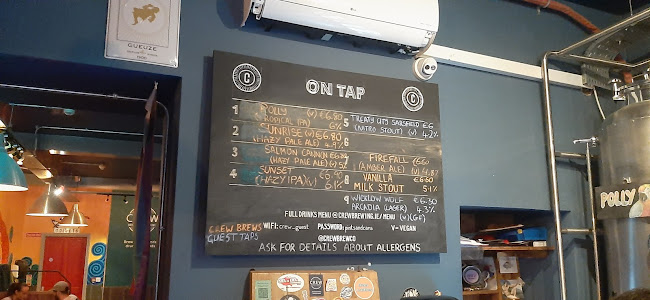 GUEUZE
C
C
ON TAP
1 POLLY (V) €6.80
(TROPICAL IPA) 6%
2 SUNRISE (V) €6.80
(HAZY PALE ALE) 4.9%
3 SALMON CANNON
(HAZY PALE ALE) (V)
4 SUNSET €6.90
(HAZY IPA) (V) 6.1%
5 TREATY CITY SARSFIELD €6
(NITRO STOUT) (V) 4.2%
6
FIREFALL
(AMBER ALE) (V)
8 VANILLA €6.60
MILK STOUT 5.1%
9 WICKLOW WOLF €6.30
ARCADIA (LAGER) 4.3%
(V)(GF)
FULL DRINKS MENU @ CREWBREWING.IE/MENU
CREW BREWS
GUEST TAPS
WIFI: crew_guest PASSWORD: V = VEGAN
@CREWBREWCO
ASK FOR DETAILS ABOUT ALLERGENS
POLLY
CREW